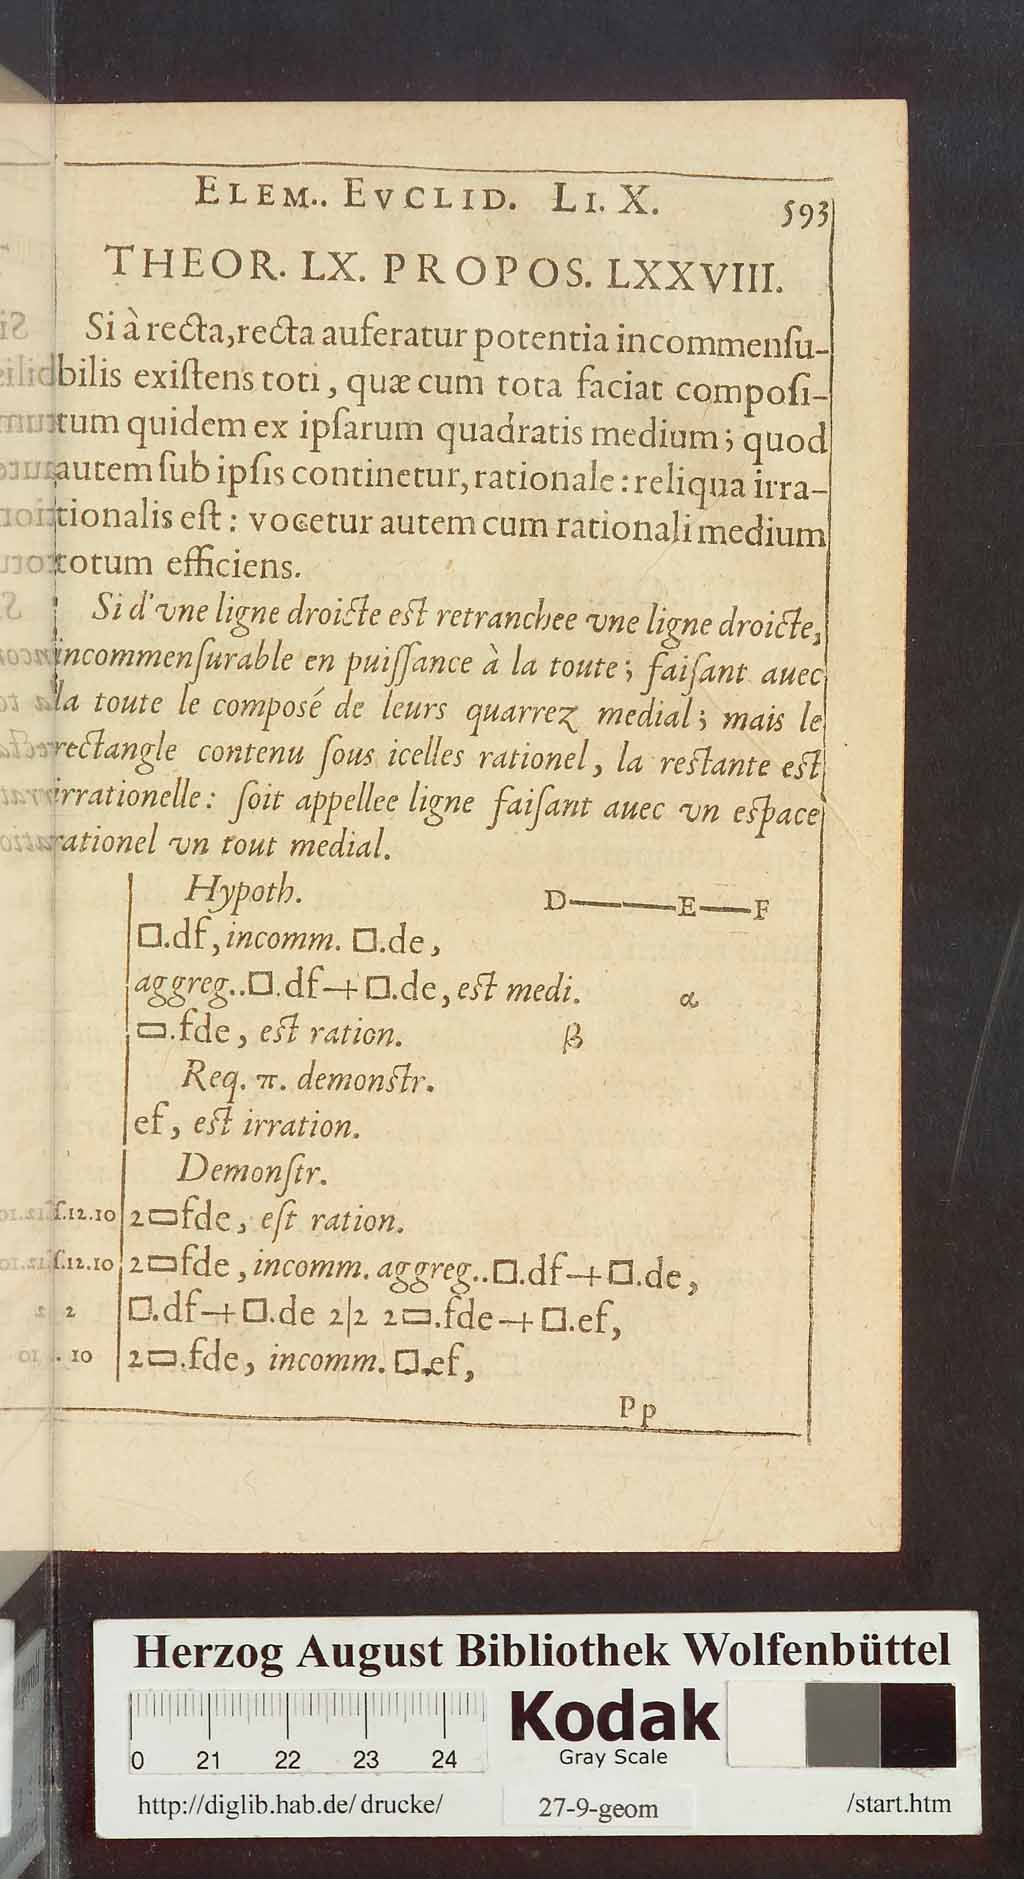 ELEM.. EVCLID. LI. X. 593
THEOR. LX. PROPOS. LXXVIII.
Si à recta, recta auferatur potentia incommensu-
bilis existens toti, quæ cum tota faciat composi-
tum quidem ex ipsarum quadratis medium; quod
autem sub ipsis continetur, rationale: reliqua irra-
tionalis est: vocetur autem cum rationali medium
totum efficiens.
Si d'vne ligne droicte est retranchee vne ligne droicte,
incommensurable en puissance à la toute; faisant auec
la toute le composé de leurs quarrez medial; mais le
rectangle contenu sous icelles rationel, la restante est
irrationelle: soit appellee ligne faisant auec vn espace
rationel vn tout medial.
Hypoth. D——E—F
□.df, incomm. □.de,
aggreg..□.df+□.de, est medi. α
▭.fde, est ration. β
Req. π. demonstr.
ef, est irration.
Demonstr.
f.12.10 2▭fde, est ration.
f.12.10 2▭fde, incomm. aggreg..□.df+□.de,
2 □.df+□.de 2|2 2▭.fde+□.ef,
. 10 2▭.fde, incomm. □.ef,
Pp
Herzog August Bibliothek Wolfenbüttel
0 21 22 23 24
Kodak
Gray Scale
http://diglib.hab.de/drucke/ 27-9-geom /start.htm